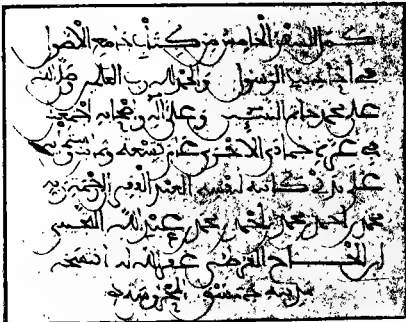 كمل السفر الخامس من كتاب جامع الأصول
في أحاديث الرسول والحمد لله رب العلمين وصلى الله
على محمد خاتم النبيين وعلى آله وصحابه أجمعين
في غرة جمادى الاخرى عام تسعة
على يدي كاتبه لنفسه العبد الفقير إلى رحمة ربه
محمد بن أحمد بن محمد بن أحمد بن محمد بن عبد الله
ابن الحاج عفى الله له
بمدينة دمشق المحروسة